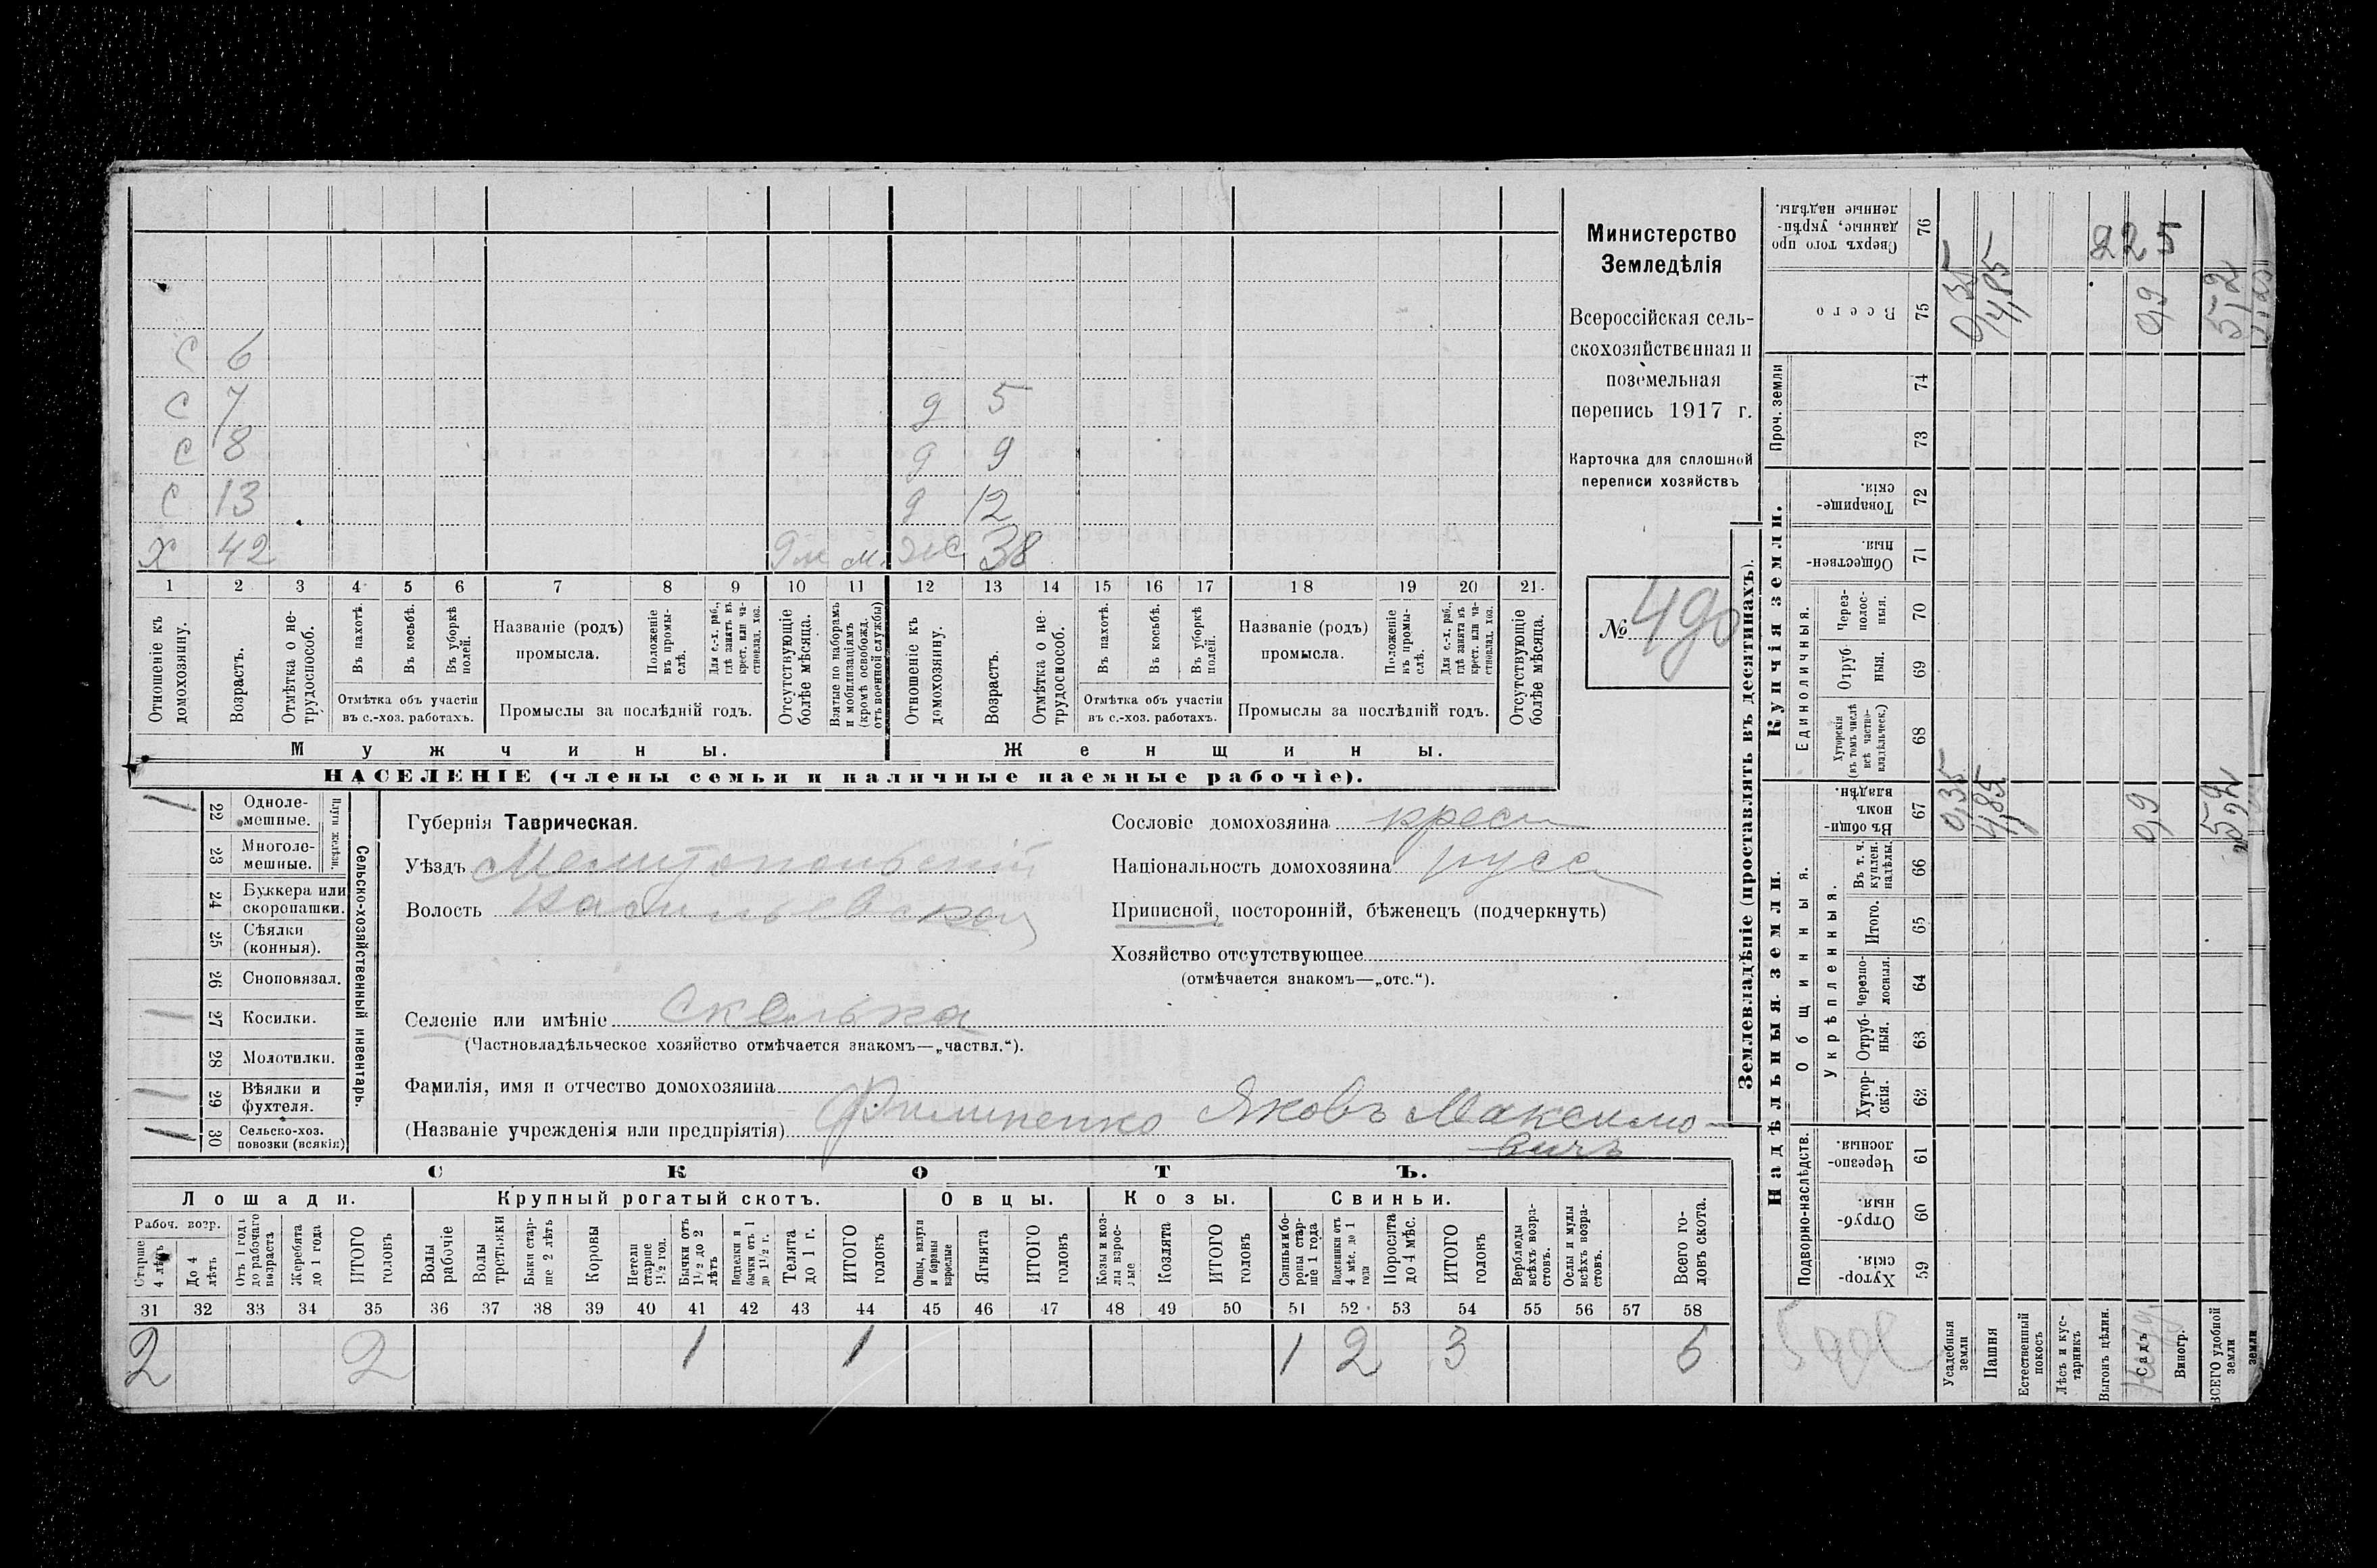 С 6
С 7 д 5
С 8 д 9
С 13 д 12
Х 42 м. ж 38
1 2 3 4 5 6 7 8 9 10 11 12 13 14 15 16 17 18 19 20 21.
Отношеніе къ домохозяину.
Возрастъ.
Отмѣтка о нетрудоспособ.
Въ пахотѣ.
Въ косьбѣ.
Въ уборкѣ полей.
Отмѣтка объ участіи въ с.-хоз. работахъ.
Названіе (родъ) промысла.
Положеніе въ промыслѣ.
Для с.-х. раб., гдѣ занятъ въ крест. или частновлад. хоз.
Промыслы за послѣдній годъ.
Отсутствующіе болѣе мѣсяца.
Взятые по наборамъ и мобилизаціямъ (кромѣ освобожд. отъ военной службы)
Отношеніе къ домохозяину.
Возрастъ.
Отмѣтка о нетрудоспособ.
Въ пахотѣ.
Въ косьбѣ.
Въ уборкѣ полей.
Отмѣтка объ участіи въ с.-хоз. работахъ.
Названіе (родъ) промысла.
Положеніе въ промыслѣ.
Для с.-х. раб., гдѣ занята въ крест. или частновлад. хоз.
Промыслы за послѣдній годъ.
Отсутствующіе болѣе мѣсяца.
Мужчины.
Женщины.
НАСЕЛЕНІЕ (члены семьи и наличные наемные рабочіе).
Министерство
Земледѣлія
Всероссійская сель-
скохозяйственная и
поземельная
перепись 1917 г.
Карточка для сплошной
переписи хозяйствъ
№
Сельско-хозяйственный инвентарь.
Плуги желѣзн.
1 22 Одноле-
мешные.
23 Многоле-
мешные.
24 Буккера или
скоропашки.
25 Сѣялки
(конныя).
26 Сноповязал.
1 27 Косилки.
28 Молотилки.
1 29 Вѣялки и
фухтеля.
1 30 Сельско-хоз.
повозки (всякія)
Губернія Таврическая.
Уѣздъ Мелитопольскій
Волость Васильевская
Селеніе или имѣніе Скелька
(Частновладѣльческое хозяйство отмѣчается знакомъ—„частвл.“).
Фамилія, имя и отчество домохозяина
(Названіе учрежденія или предпріятія) Филипенко Яковъ Максимо-
вичъ
Сословіе домохозяина крест
Національность домохозяина русс
Приписной, посторонній, бѣженецъ (подчеркнуть)
Хозяйство отсутствующее
(отмѣчается знакомъ—„отс.“).
СКОТЪ.
Лошади.
Крупный рогатый скотъ.
Овцы.
Козы.
Свиньи.
Рабоч. возр.
Старше 4 лѣтъ
До 4 лѣтъ
Отъ 1 года до рабочаго возраста
Жеребята до 1 года
ИТОГО головъ
Волы рабочіе
Волы третьяки
Быки старше 2 лѣтъ
Коровы
Нетели старше 1 1/2 год.
Бычки отъ 1 1/2 до 2 лѣтъ
Подтелки и бычки отъ 1 до 1 1/2 г.
Телята до 1 г.
ИТОГО головъ
Овцы, валухи и бараны взрослые
Ягнята
ИТОГО головъ
Козы и козлы взрослые
Козлята
ИТОГО головъ
Свиньи и боровы старше 1 года
Подсвинки отъ 4 мѣс. до 1 года
Поросята до 4 мѣс.
ИТОГО головъ
Верблюды всѣхъ возрастовъ.
Ослы и мулы всѣхъ возрастовъ.
Всего головъ скота.
31 32 33 34 35 36 37 38 39 40 41 42 43 44 45 46 47 48 49 50 51 52 53 54 55 56 57 58
2 2 1 1 1 2 3 6
Землевладѣніе (проставлять въ десятинахъ).
Надѣльныя земли.
Купчія земли.
Проч. земли
Всего
Сверхъ того проданные, укрѣпленные надѣлы.
Подворно-наслѣдств.
Общинныя.
Укрѣпленныя.
Единоличныя.
Хуторскія. 59
Отрубныя. 60
Черезполосныя. 61
Хуторскія. 62
Отрубныя. 63
Черезполосныя. 64
Итого. 65
Въ т. ч. куплен. надѣлы. 66
Въ общинномъ владѣн. 67
Хуторскія (въ томъ числѣ всѣ частновладѣльческ.) 68
Отрубныя. 69
Черезполосныя. 70
Общественныя. 71
Товарищескія. 72
73
74
75
76
Усадебныя земли 0,35 0,35
Пашня 4,85 4,85
Естественный покосъ
Лѣсъ и кустарникъ
Выгонъ цѣлин.
Садъ 0,9 0,9
Виногр.
ВСЕГО удобной земли 5,2 5,2
земли
225